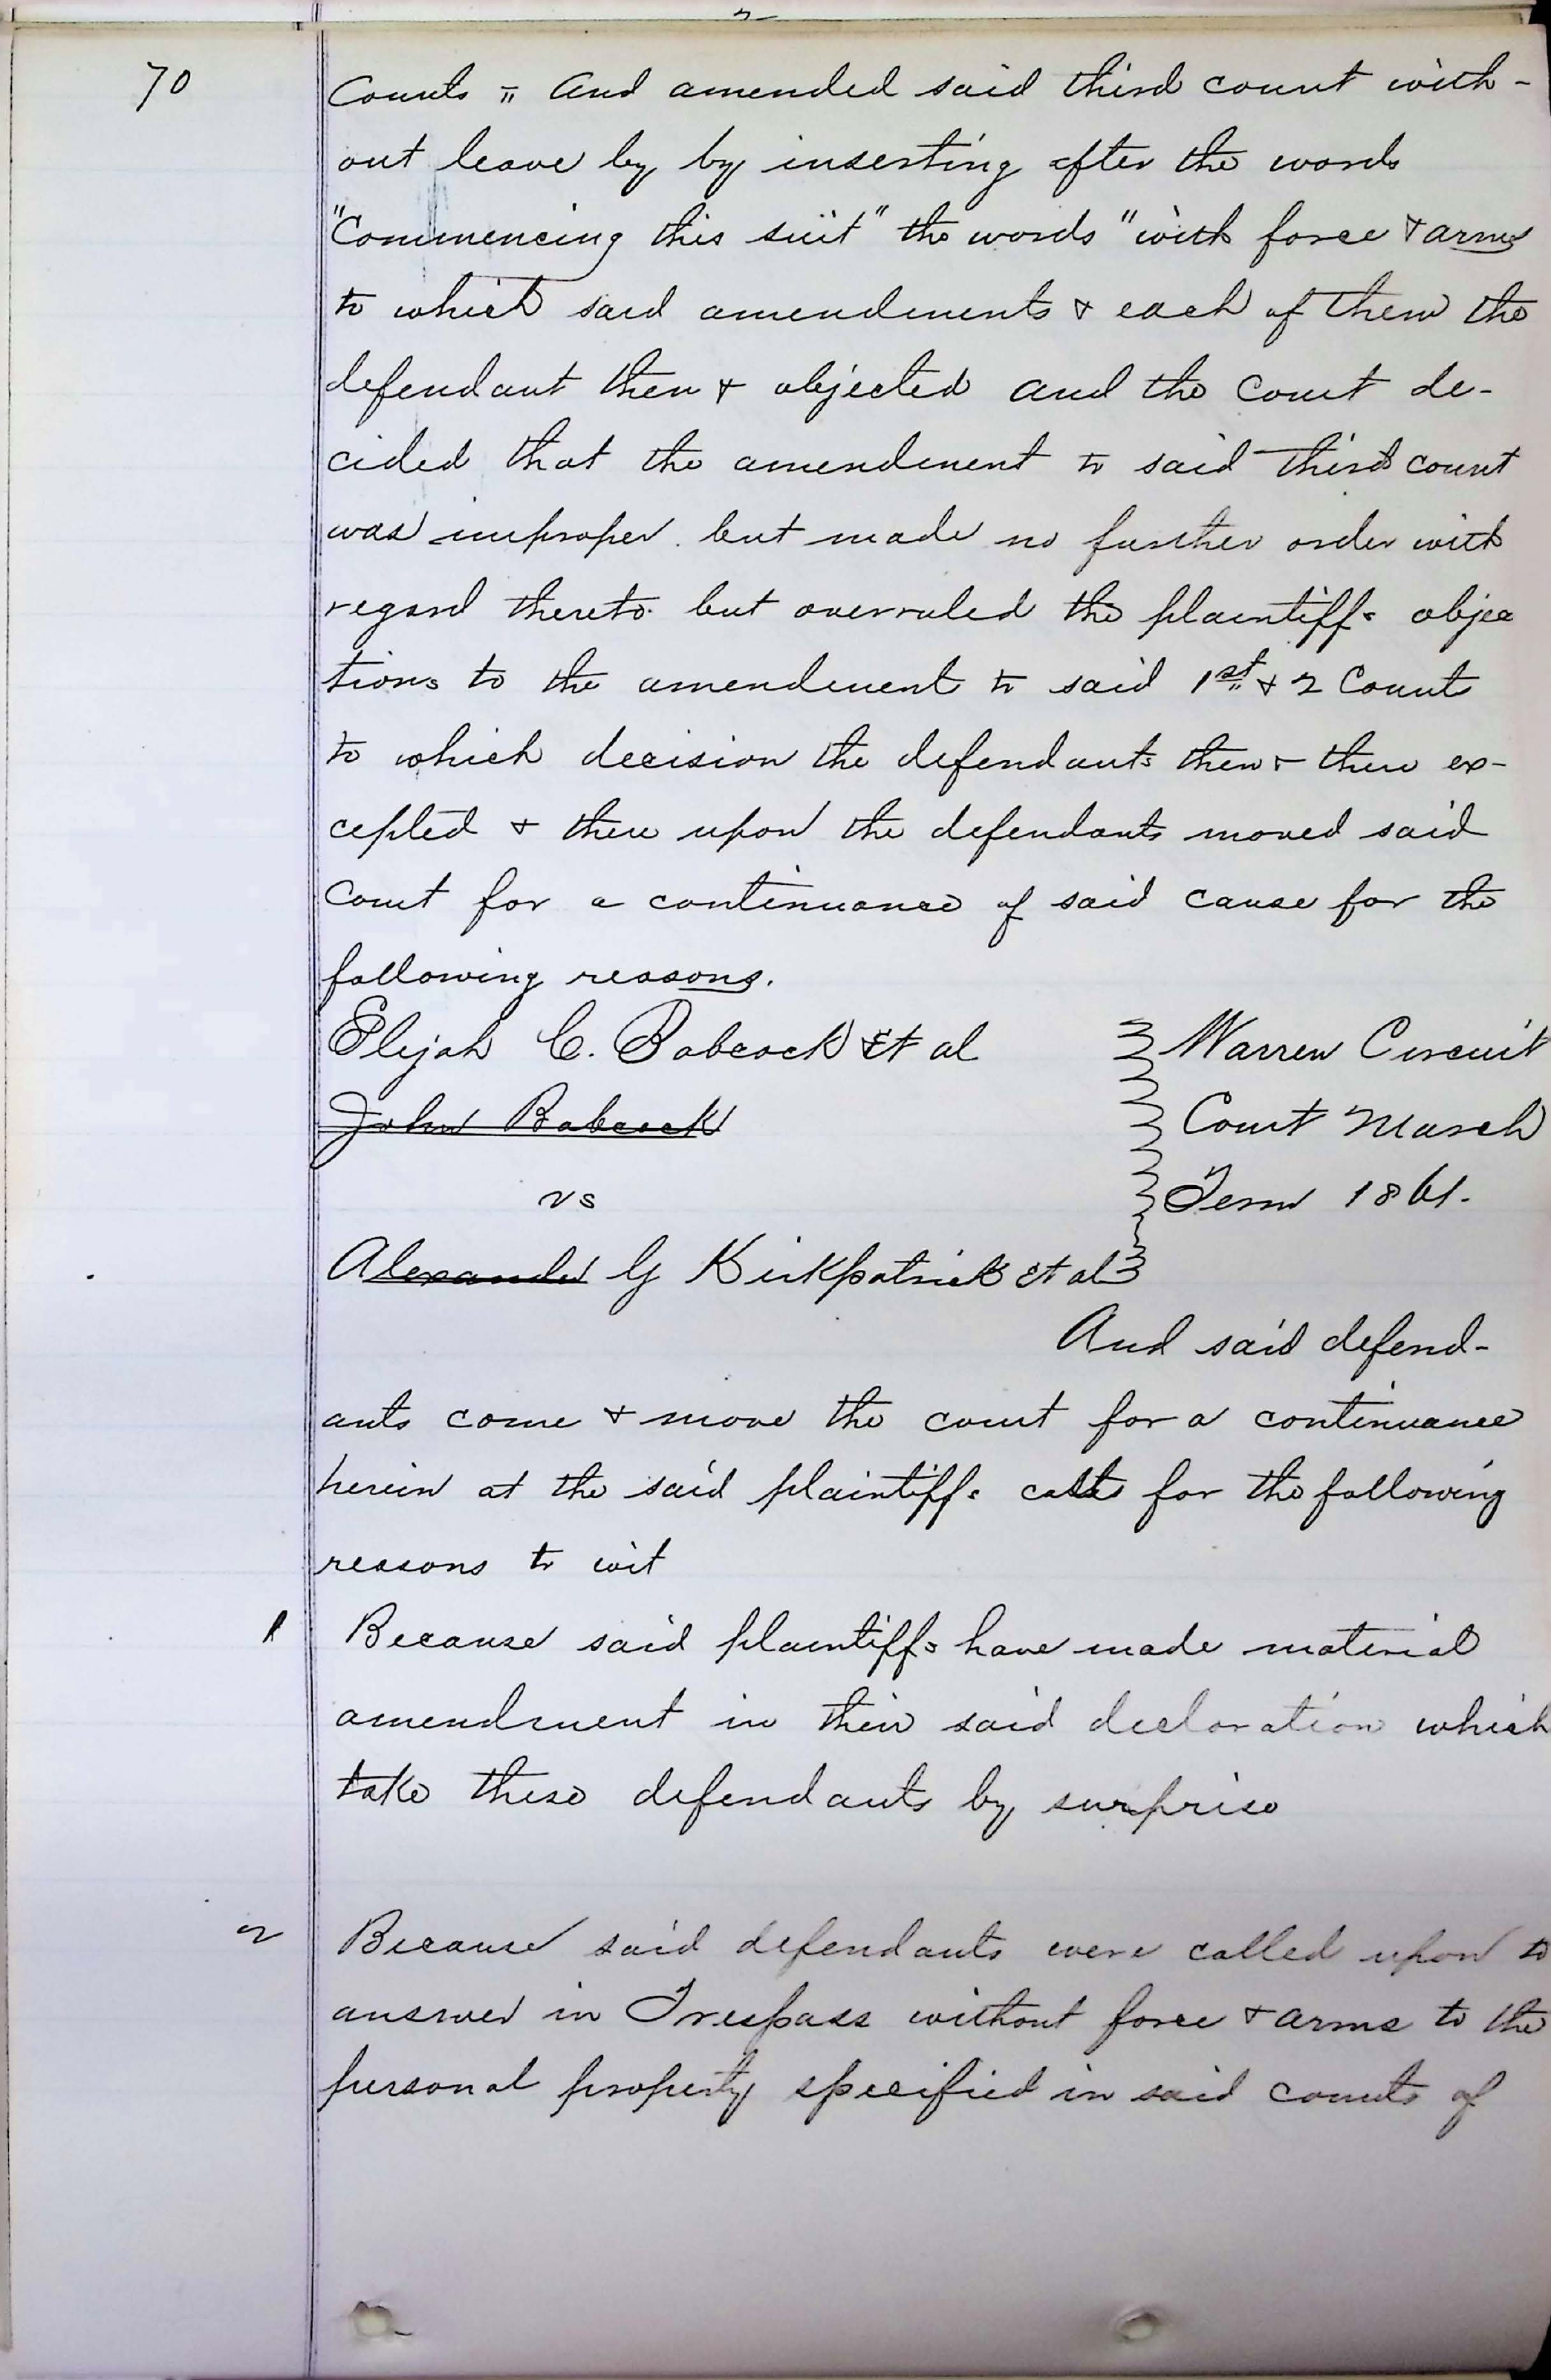 70
Counts = And amended said third count with-
out leave by by inserting after the words
"Commencing this suit" the words "with force & arms
to which said amendments & each of them the
defendant then & objected and the Court de-
cided that the amendment to said third count
was improper. but made no further order with
regard thereto. but overruled the plaintiffs objec
tions to the amendment to said 1st & 2 Counts
to which decision the defendants then & there ex-
cepted & there upon the defendants moved said
Court for a continuance of said cause for the
following reasons.
Elijah C. Babcock Et al
John Babcock
vs
Alexander G Kirkpatrick et al
Warren Circuit
Court March
Term 1861.
And said defend-
ants come & move the court for a continuance
herein at the said plaintiffs costs for the following
reasons to wit
1 Because said plaintiffs have made material
amendment in their said declaration which
take these defendants by surprise
2 Because said defendants were called upon to
answer in Trespass without force & arms to the
personal property specified in said counts of